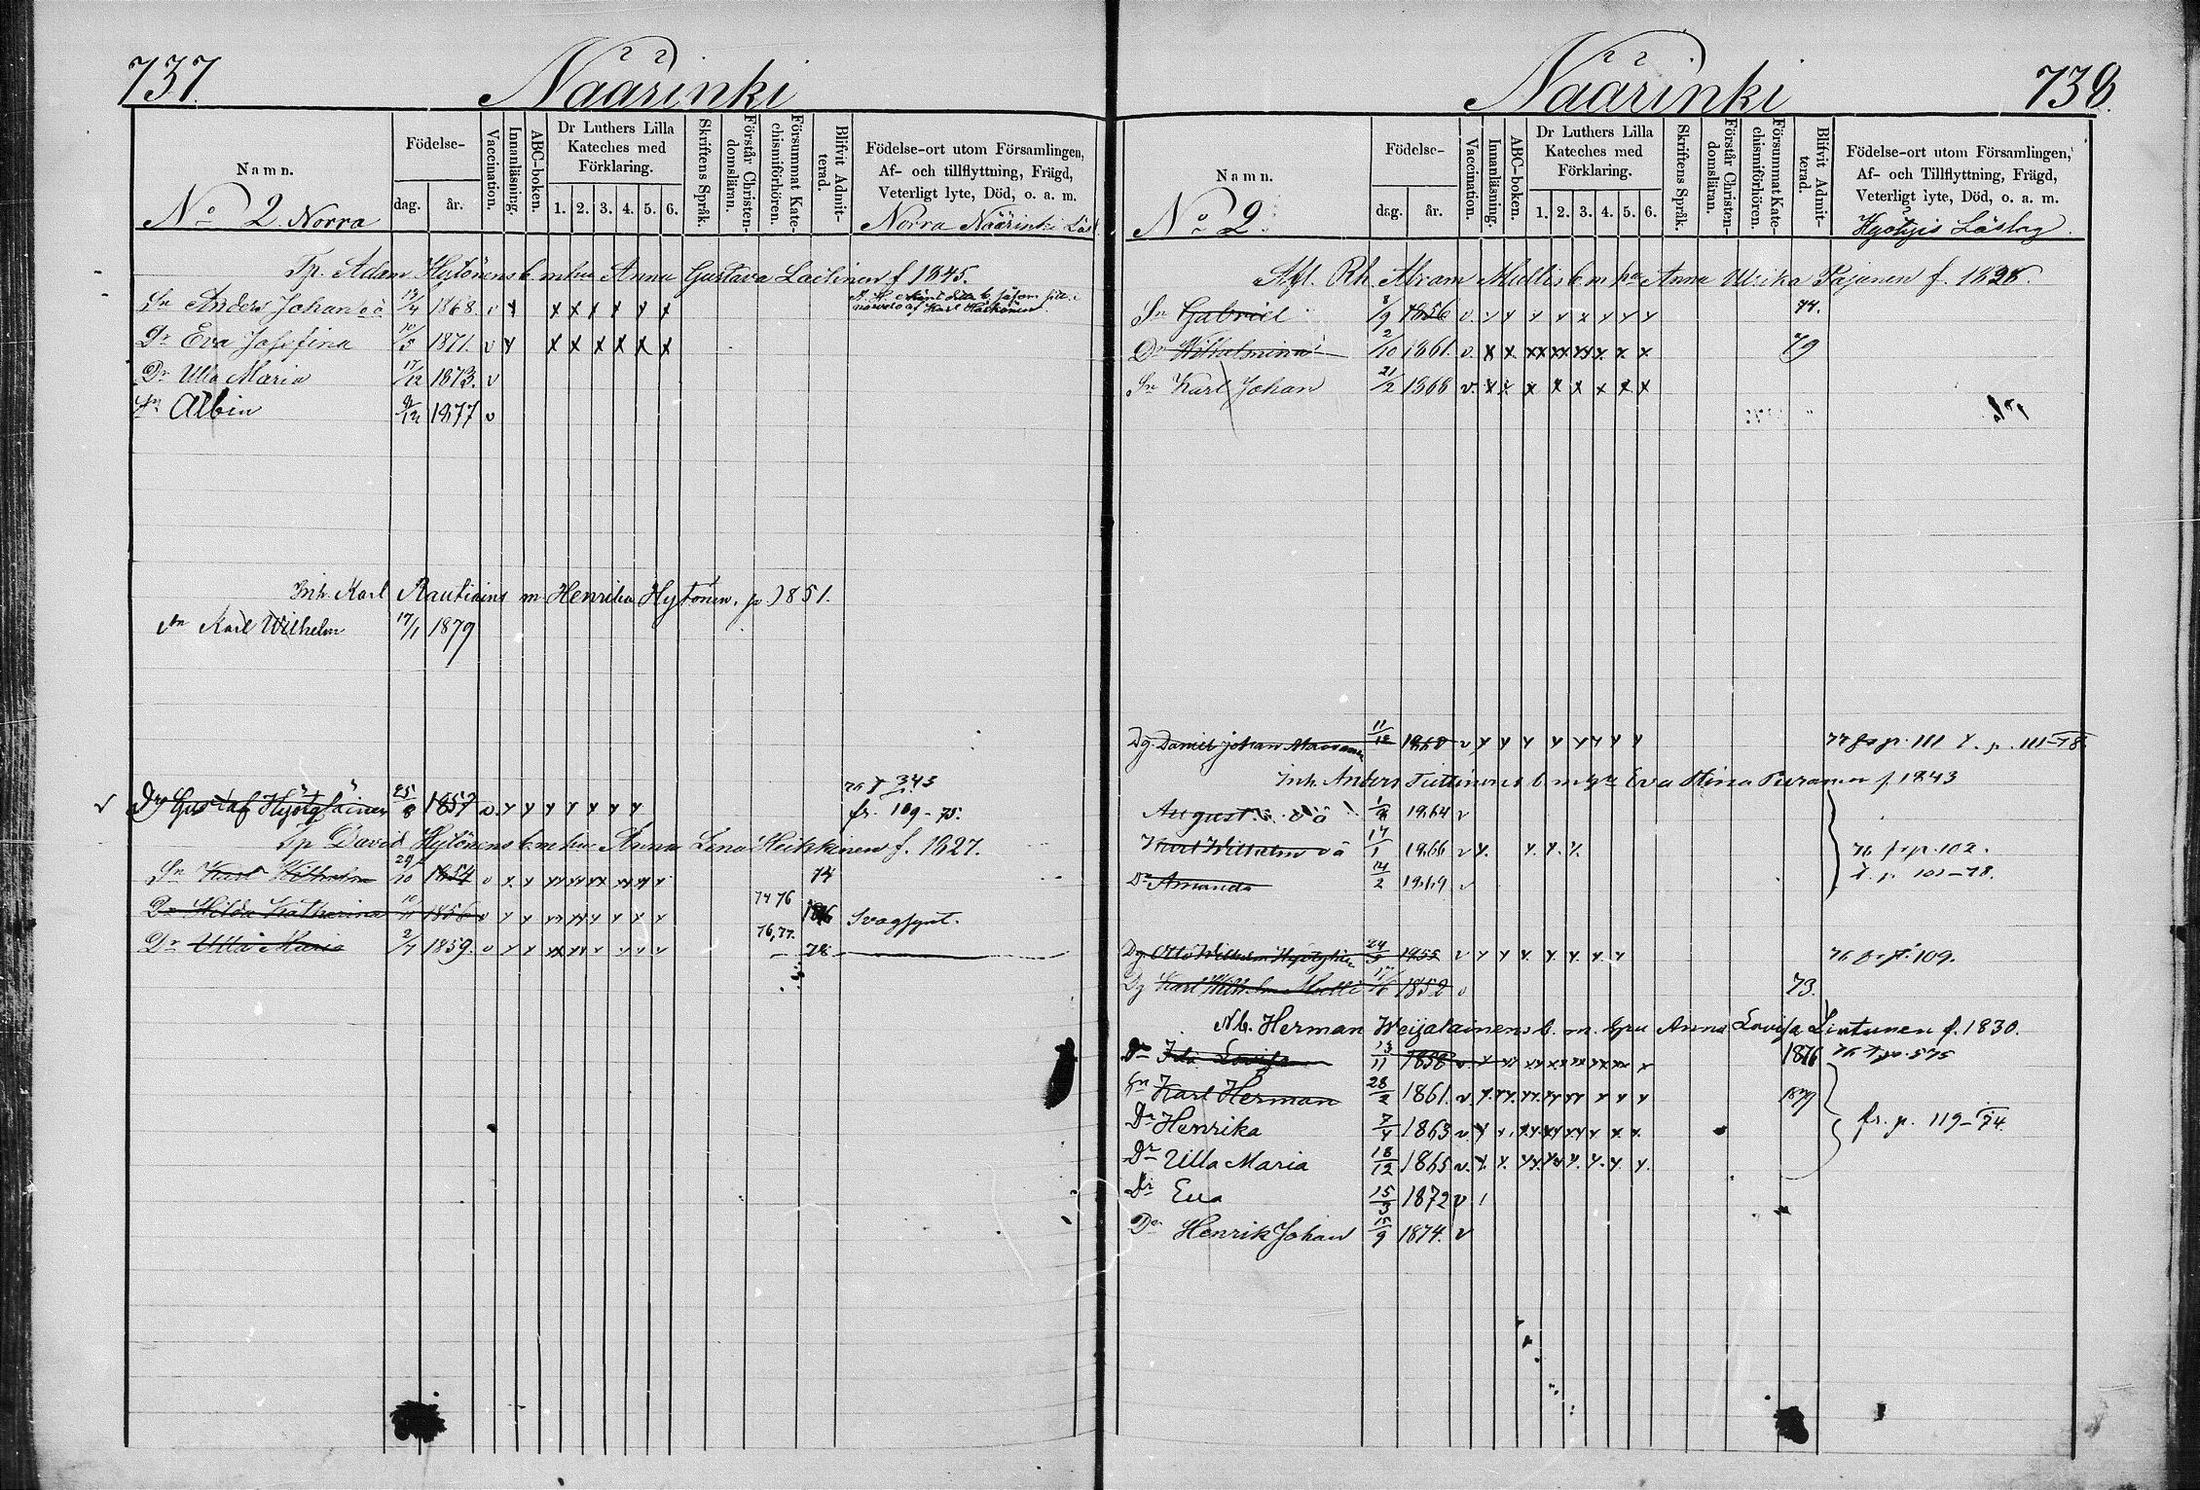 737
Näärinki
Namn.
Födelse-
dag.
år.
Vaccination.
Innanläsning.
ABC-boken.
Dr Luthers Lilla
Kateches med
Förklaring.
1. 2. 3. 4. 5. 6.
Skriftens Språk.
Förstår Christen-
domsläran.
Försummat Kate-
chismiförhören.
Blifvit Admit-
terad.
Födelse-ort utom Församlingen,
Af- och tillflyttning, Frägd,
Veterligt lyte, Död, o. a. m.
No 2 Norra
Norra Näärinki Läsl
Tp. Adam Hytönens b m hu Anna Gustava Laitinen f 1845.
Sn Anders Johan o ä 13/4 1868. v x x x x x x x
af Karl
Dr Eva Josefina 10/5 1871. v x x x x x x x
Dr Ulla Maria 17/12 1873. v
Sn Albin 9/12 1877 v
Inh. Karl Rautiains m Henrika Hytönen, f 1851.
Sn Karl Wilhelm 17/1 1879
v Dg Gustaf Hyötyläinen 25/8 1857 v. x x x x x x x
76 f 345
fr. 109-75.
Tp David Hytönens b m hu Anna Lena Heikkinen f. 1827.
Sn Karl Wilhelm 29/10 1854 v x x xx xx xx xx x x 74
Dr Hilda Katharina 10/11 1856 v x x xx xx x x x x 74 76 1876 Svagsynt.
Dr Ulla Maria 2/7 1859. v x x xx xx x x x x 76, 77. – 78
738.
Näärinki
Namn.
Födelse-
dag.
år.
Vaccination.
Innanläsning.
ABC-boken.
Dr Luthers Lilla
Kateches med
Förklaring.
1. 2. 3. 4. 5. 6.
Skriftens Språk.
Förstår Christen-
domsläran.
Försummat Kate-
chismiförhören.
Blifvit Admit-
terad.
Födelse-ort utom Församlingen,
Af- och Tillflyttning, Frägd,
Veterligt lyte, Död, o. a. m.
No 2.
Läslag
Afl. Rh. Abram Mullis b m hu Anna Ulrika Pajanen f. 1828.
Sn Gabriel 8/9 1856 v. x x x x x x x x 74.
Dr Wilhelmina 2/10 1861. v. x x xx xx xx x x x 79
Sn Karl Johan 21/2 1868 v. x x x x x x x x
Dg. Daniel Johan 11/12 1860 v x x x x x x x x
77 fr p. 111 f. p. 111-78
Inh. Anders Tiittinens b m Eva Stina Puranen f. 1843
August o ä 1864 v
Karl Wilhelm o ä 17/1 1866 v x. x. x. x.
76 fr p. 102.
f. p. 102-78.
Dr Amanda 14/2 1869 v
Dg Otto Wilhelm 24/5 1855 v x x x x x x x
76 fr p. 109.
Dg Karl Wilhelm Mulli 1852 v 73.
Nb. Herman Weijalainens b. m. hu Anna Lovisa Lintunen f. 1830.
Dr Ida Lovisa 13/11 1858 v x xx xx xx xx xx xx x 1876
76 f p. 575
Sn Karl Herman 28/2 1861. v. x. xx. xx. xx xx x x x 1879
Dr Henrika 7/4 1863 v. x x. xx xx xx x x x.
fr. p. 119-74
Dr Ulla Maria 18/12 1865 v. x. x. xx xx x. x. x x.
Dr Eva 15/3 1872 v
Henrik Johan 15/9 1874. v